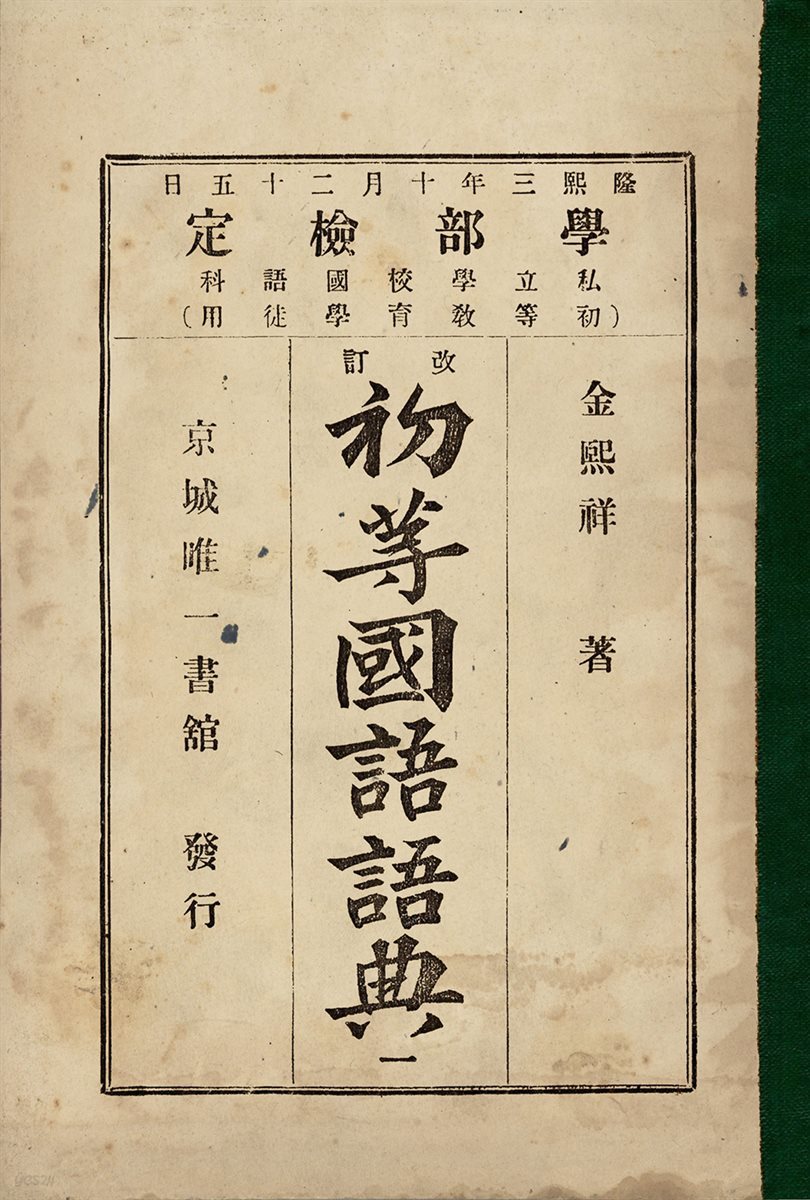 隆熙三年十月二十五日
學部檢定
私立學校國語科
(初等教育學徒用)
金熙祥 著
改訂
初等國語語典 一
京城唯一書舘 發行
yes24